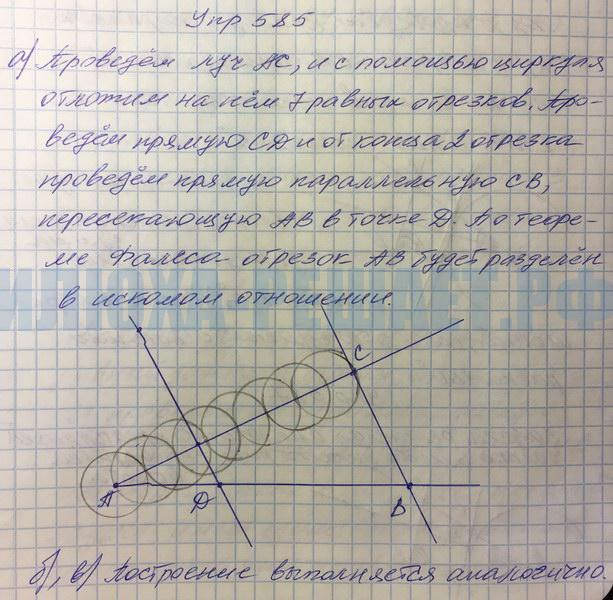 Упр 585
а) Проведём луч АС, и с помощью циркуля
отложим на нём 7 равных отрезков. Про-
ведём прямую СД и от конца 2 отрезка
проведём прямую параллельную СВ,
пересекающую АВ в точке Д. По теоре-
ме Фалеса отрезок АВ будет разделён
в искомом отношении.
С
А Д В
б), в) Построение выполняется аналогично.